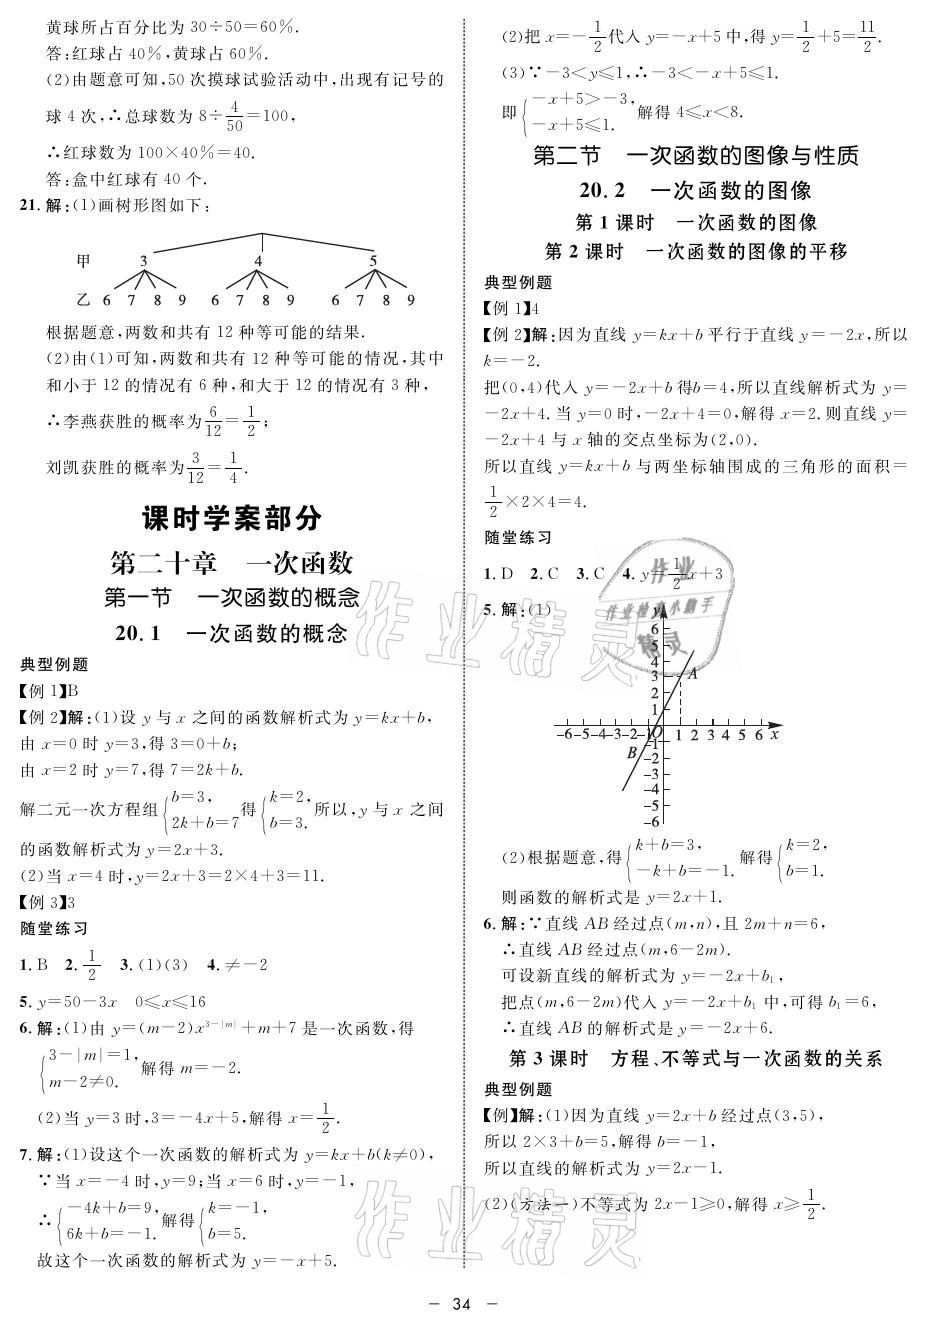 黄球所占百分比为 30÷50=60%.
答:红球占 40%,黄球占 60%.
(2)由题意可知,50 次摸球试验活动中,出现有记号的
球 4 次,∴总球数为 8÷4/50=100,
∴红球数为 100×40%=40.
答:盒中红球有 40 个.
21.解:(1)画树形图如下:
甲 3 4 5
乙 6 7 8 9 6 7 8 9 6 7 8 9
根据题意,两数和共有 12 种等可能的结果.
(2)由(1)可知,两数和共有 12 种等可能的情况,其中
和小于 12 的情况有 6 种,和大于 12 的情况有 3 种,
∴李燕获胜的概率为6/12=1/2;
刘凯获胜的概率为3/12=1/4.
课时学案部分
第二十章 一次函数
第一节 一次函数的概念
20.1 一次函数的概念
典型例题
【例 1】B
【例 2】解:(1)设 y 与 x 之间的函数解析式为 y=kx+b,
由 x=0 时 y=3,得 3=0+b;
由 x=2 时 y=7,得 7=2k+b.
解二元一次方程组{b=3, 2k+b=7 得{k=2, b=3. 所以,y 与 x 之间
的函数解析式为 y=2x+3.
(2)当 x=4 时,y=2x+3=2×4+3=11.
【例 3】3
随堂练习
1.B 2.1/2 3.(1)(3) 4.≠-2
5.y=50-3x 0≤x≤16
6.解:(1)由 y=(m-2)x^{3-|m|}+m+7 是一次函数,得
{3-|m|=1, m-2≠0. 解得 m=-2.
(2)当 y=3 时,3=-4x+5,解得 x=1/2.
7.解:(1)设这个一次函数的解析式为 y=kx+b(k≠0),
∵当 x=-4 时,y=9;当 x=6 时,y=-1,
∴{-4k+b=9, 6k+b=-1. 解得{k=-1, b=5.
故这个一次函数的解析式为 y=-x+5.
(2)把 x=-1/2代入 y=-x+5 中,得 y=1/2+5=11/2.
(3)∵-3<y≤1,∴-3<-x+5≤1.
即{-x+5>-3, -x+5≤1. 解得 4≤x<8.
第二节 一次函数的图像与性质
20.2 一次函数的图像
第 1 课时 一次函数的图像
第 2 课时 一次函数的图像的平移
典型例题
【例 1】4
【例 2】解:因为直线 y=kx+b 平行于直线 y=-2x,所以
k=-2.
把(0,4)代入 y=-2x+b 得b=4,所以直线解析式为 y=
-2x+4.当 y=0 时,-2x+4=0,解得 x=2.则直线 y=
-2x+4 与 x 轴的交点坐标为(2,0).
所以直线 y=kx+b 与两坐标轴围成的三角形的面积=
1/2×2×4=4.
随堂练习
1.D 2.C 3.C 4.y=1/2x+3
5.解:(1)
y
6
5
4
3 A
2
1
-6-5-4-3-2-1 O 1 2 3 4 5 6 x
-1
B -2
-3
-4
-5
-6
(2)根据题意,得{k+b=3, -k+b=-1. 解得{k=2, b=1.
则函数的解析式是 y=2x+1.
6.解:∵直线 AB 经过点(m,n),且 2m+n=6,
∴直线 AB 经过点(m,6-2m).
可设新直线的解析式为 y=-2x+b₁,
把点(m,6-2m)代入 y=-2x+b₁ 中,可得 b₁=6,
∴直线 AB 的解析式是 y=-2x+6.
第 3 课时 方程、不等式与一次函数的关系
典型例题
【例】解:(1)因为直线 y=2x+b 经过点(3,5),
所以 2×3+b=5,解得 b=-1,
所以直线的解析式为 y=2x-1.
(2)(方法一)不等式为 2x-1≥0,解得 x≥1/2.
作业精灵
作业
作业检查小助手
精灵
作业精灵
- 34 -